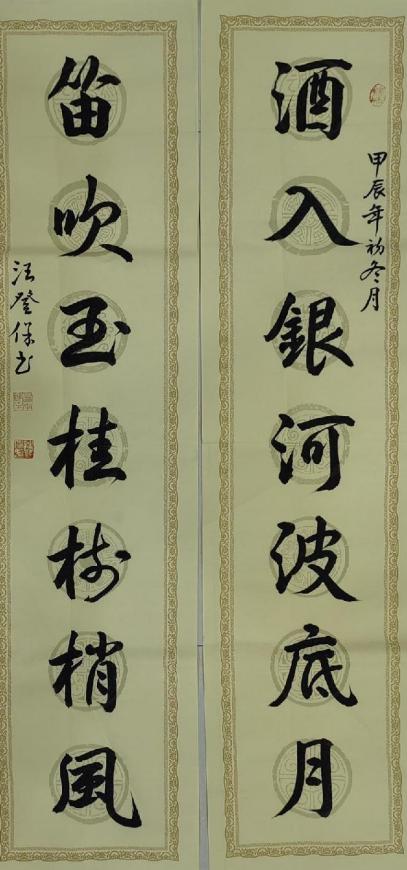 酒入銀河波底月
甲辰年初冬月
笛吹玉桂树梢風
汪登保书